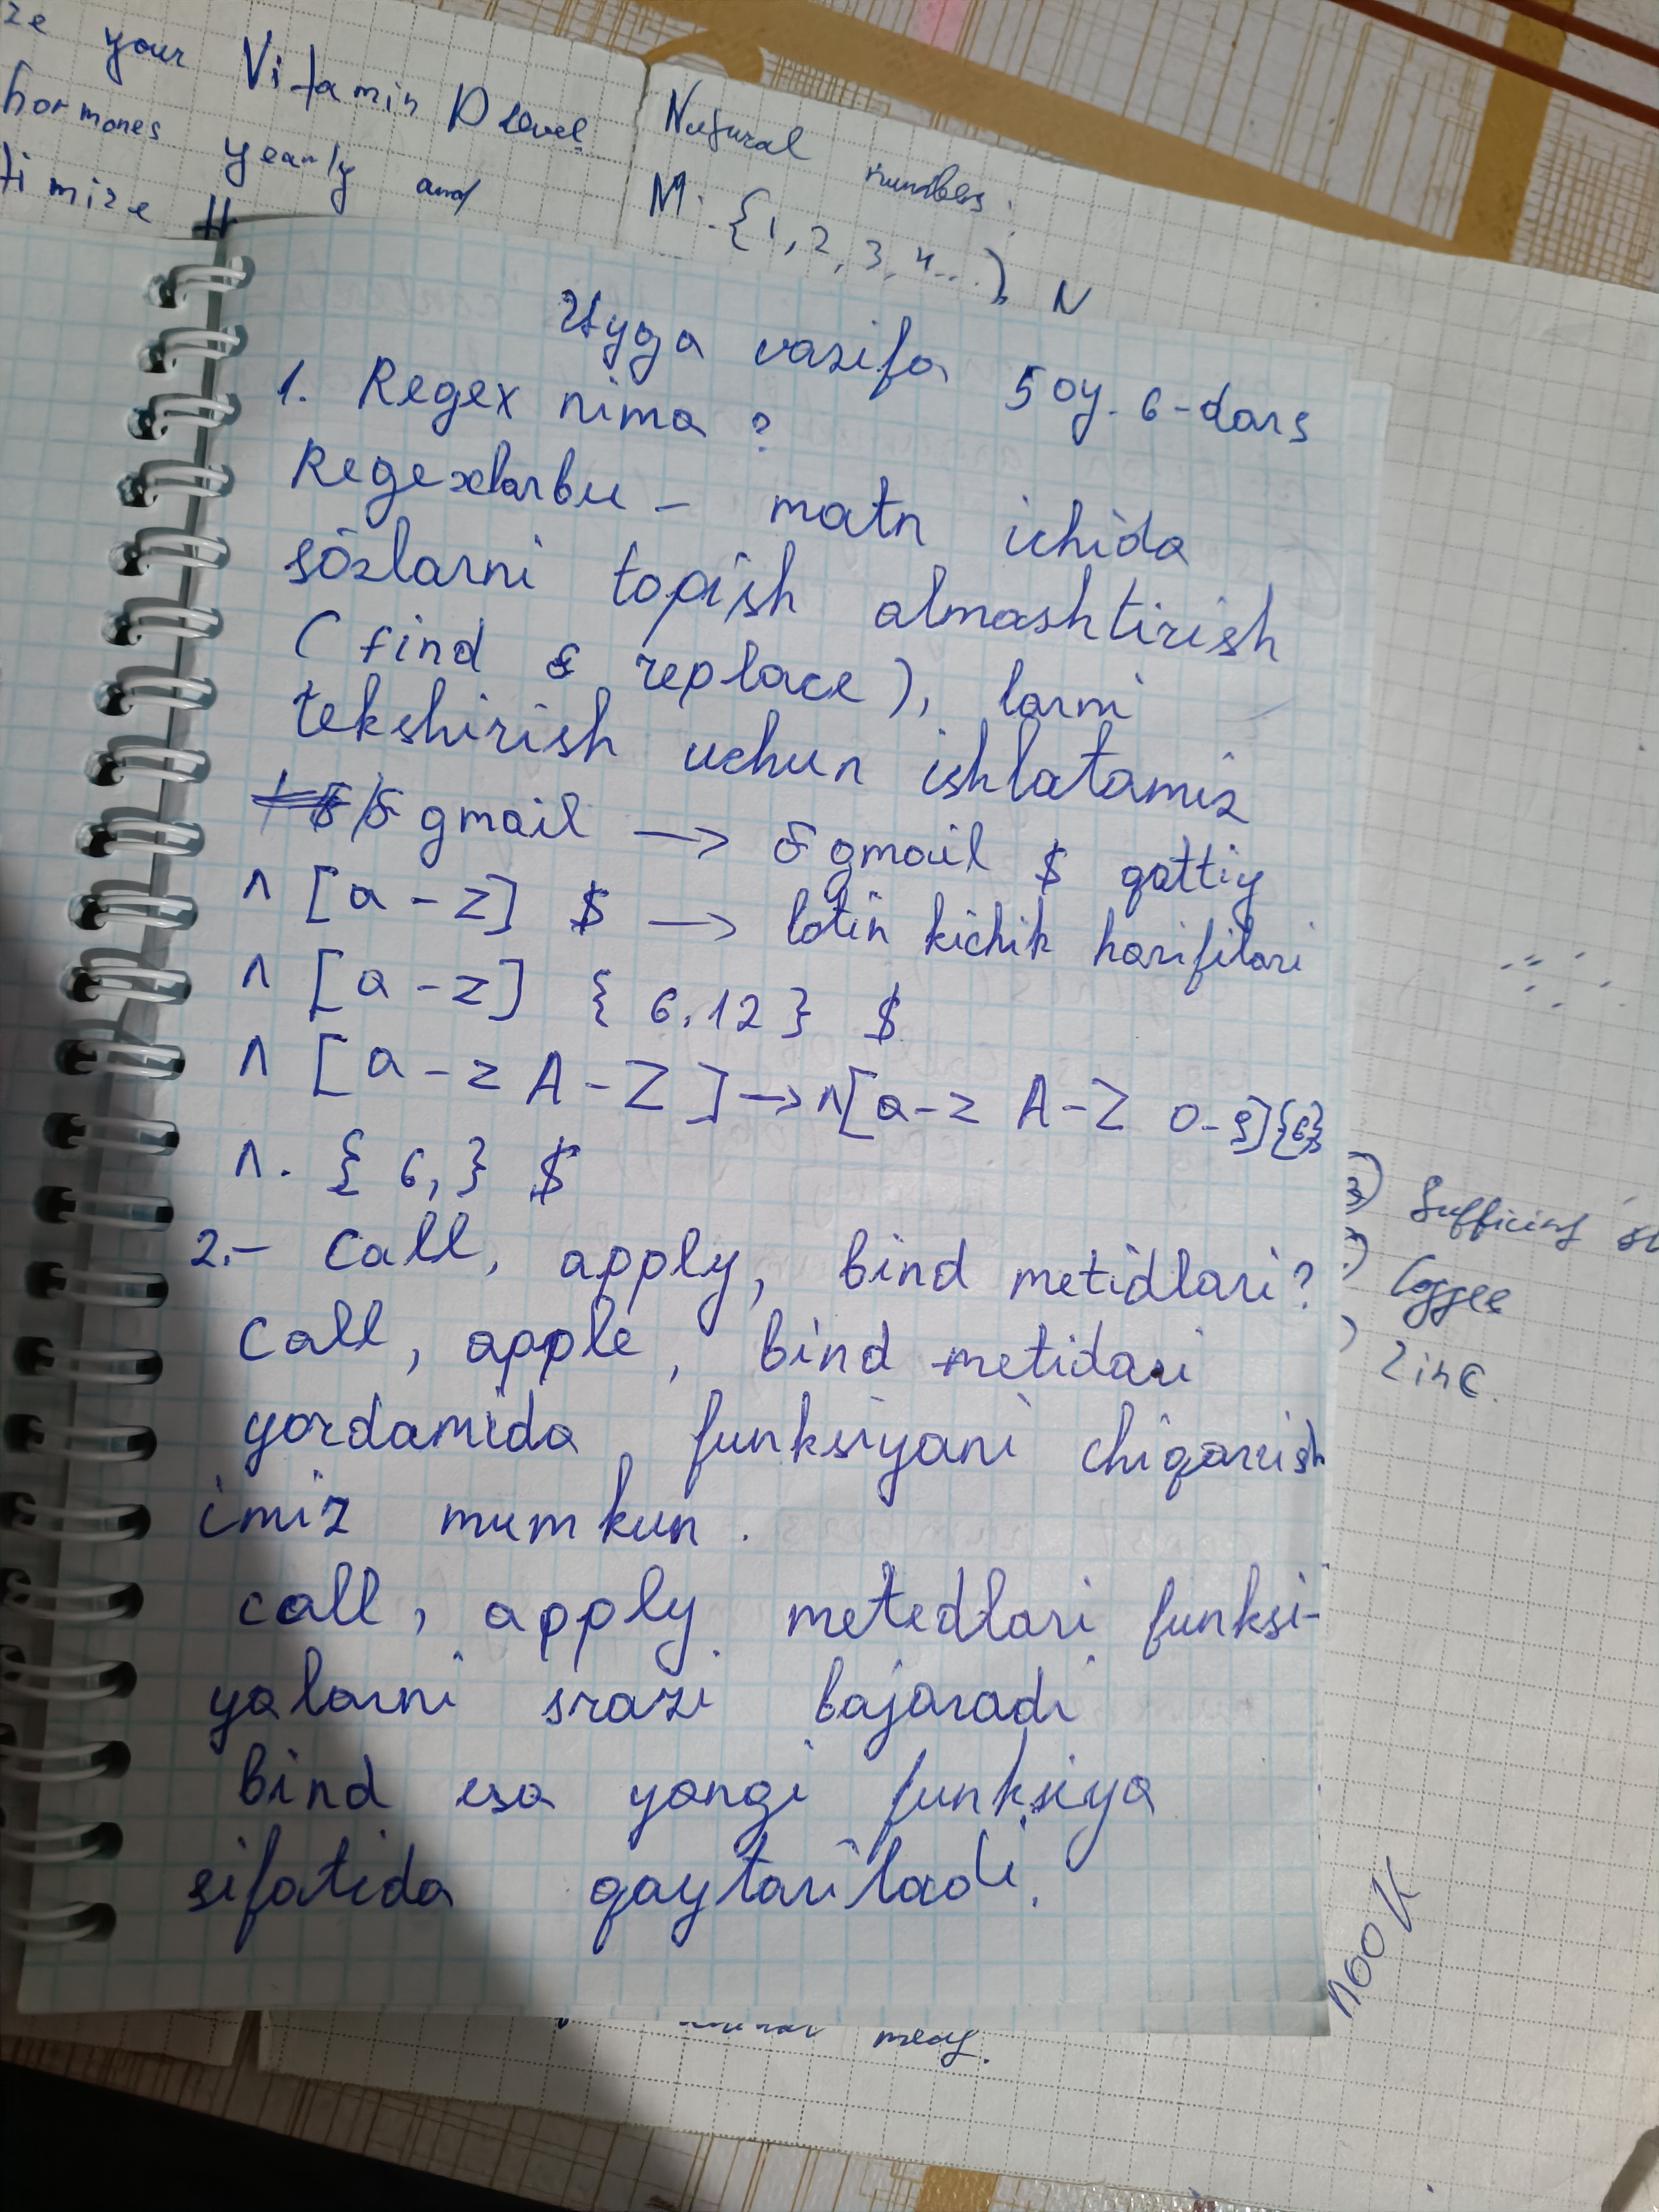 ze your Vitamin D level
hormones yearly and
timize
Natural numbers:
M: {1, 2, 3, 4...} N
Uyga vazifa 5 oy. 6-dars
1. Regex nima?
Regexlarbu - matn ichida
sõzlarni topish almashtirish
(find & replace), larni
tekshirish uchun ishlatamiz
gmail → gmail $ qattiy
^ [a-z] $ → lotin kichik harifilari
^ [a-z] {6,12} $
^ [a-z A-Z] → ^[a-z A-Z 0-9]{6}
^. {6,} $
2.- Call, apply, bind metidlari?
Call, apple, bind metidari
yordamida funksiyani chiqarish
imiz mumkun.
call, apply metedlari funksi-
yalarni srazi bajaradi
bind esa yangi funksiya
sifatida qaytariladi.
3) Sufficing
Coggee
Zinc.
meay.